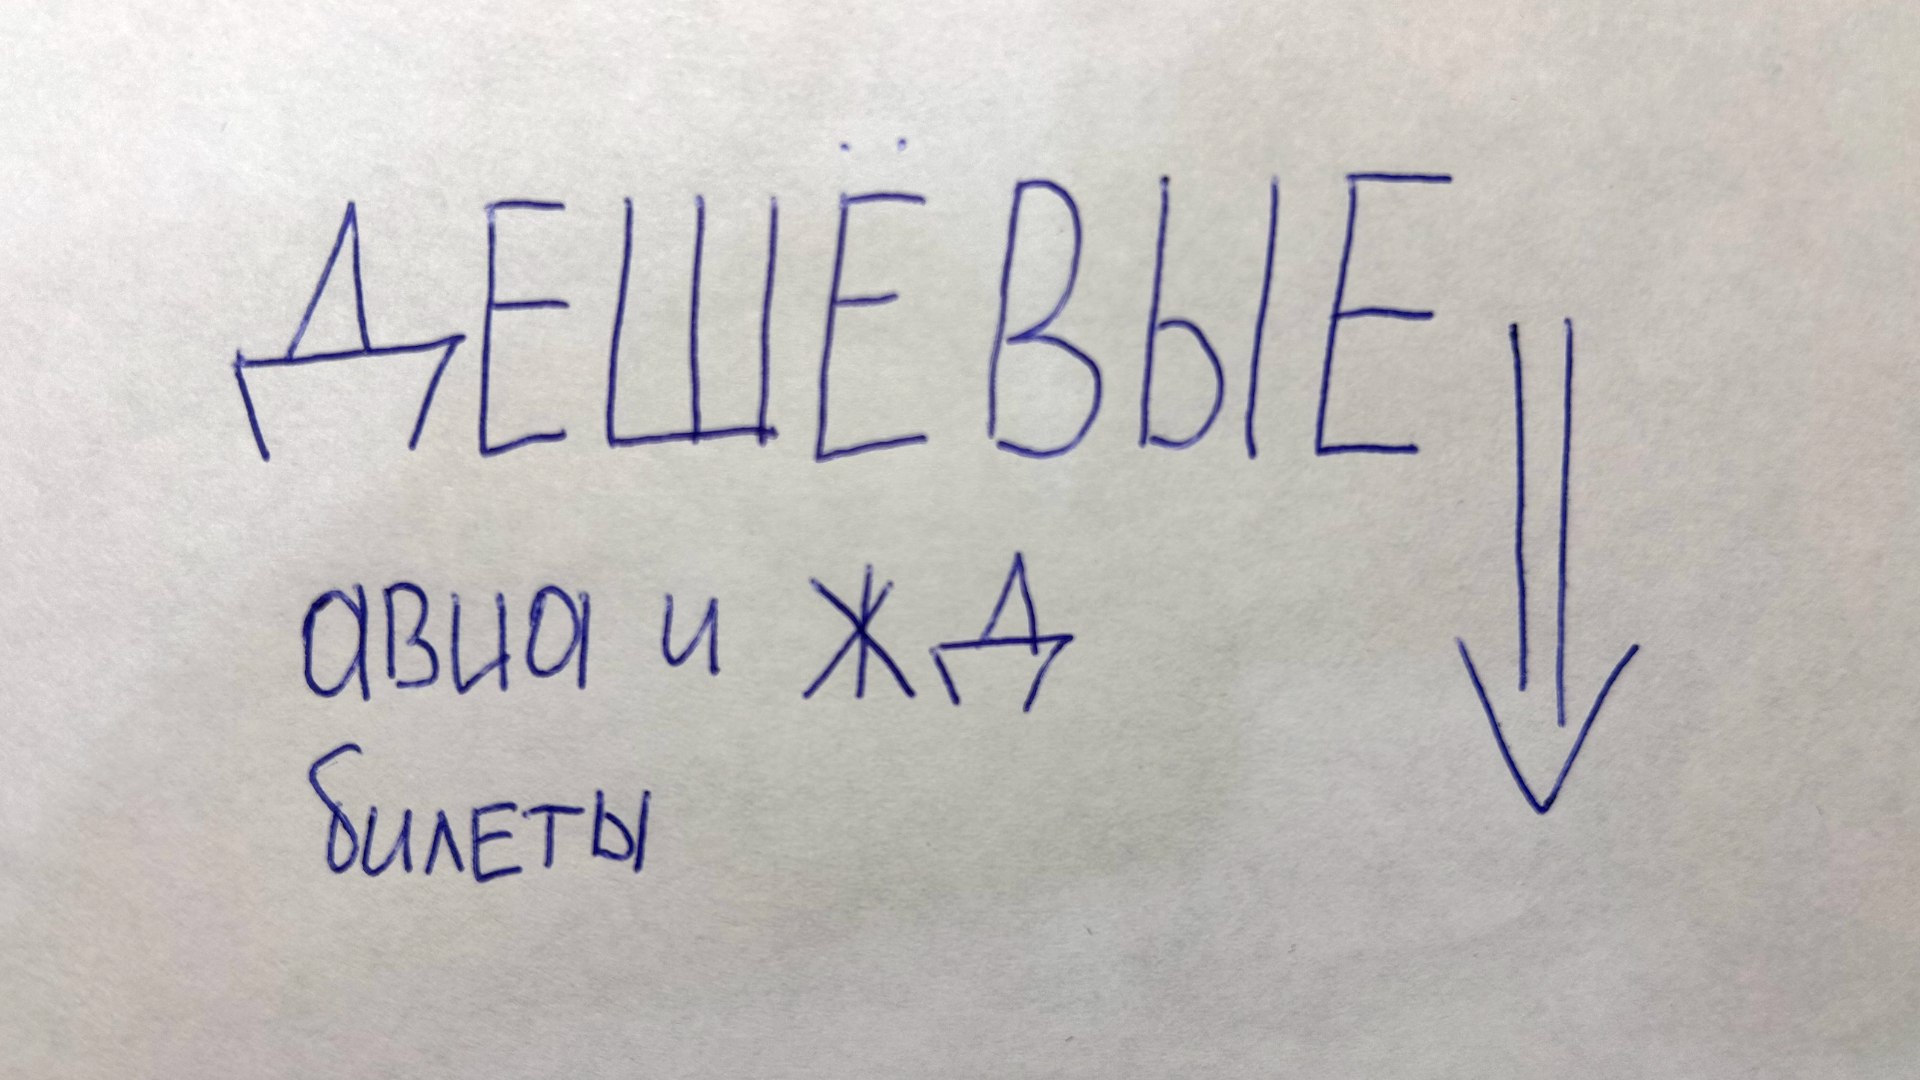 ДЕШЁВЫЕ
авиа и жд
билеты